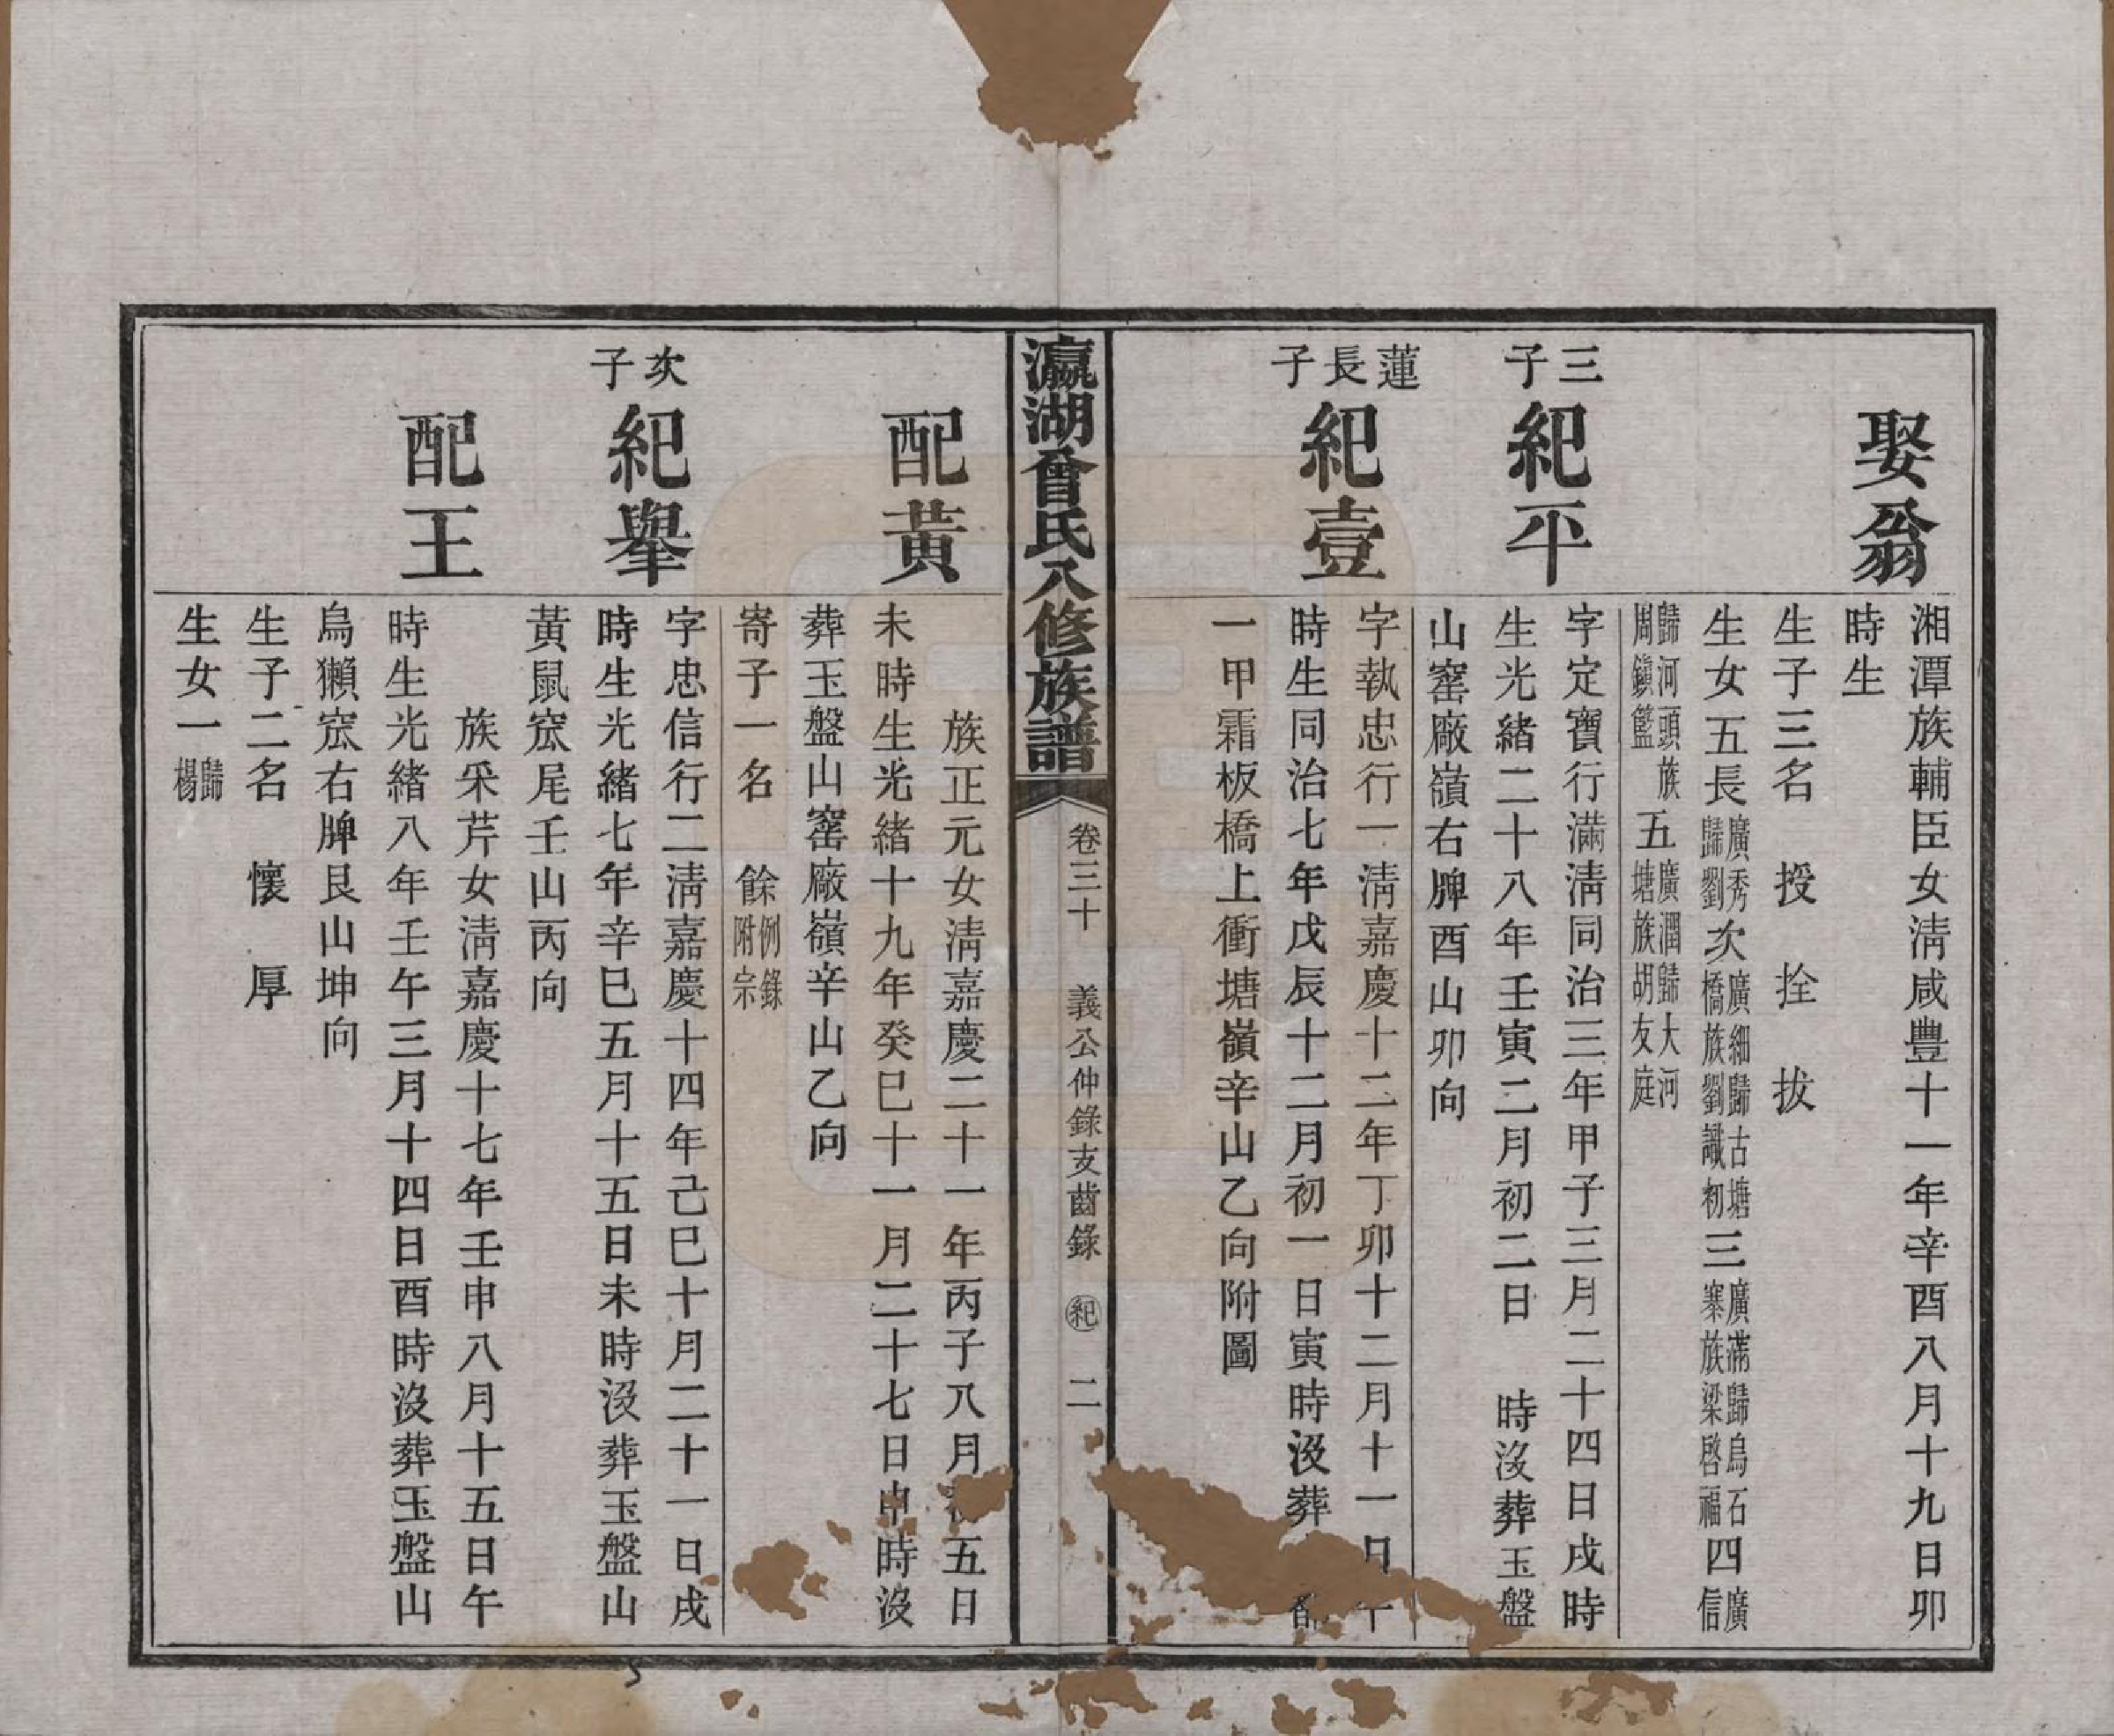 娶翁
湘潭族輔臣女淸咸豐十一年辛酉八月十九日卯
時生
生子三名 授 拴 拔
生女五長廣秀歸劉次廣細歸古塘橋族劉讖初三廣滿歸烏石寨族梁啓福四廣信
歸河頭族周鎭籃五廣潤歸大河塘族胡友庭
三子
紀平
字定寶行滿淸同治三年甲子三月二十四日戌時
生光緒二十八年壬寅二月初二日 時沒葬玉盤
山窰廠嶺右脾酉山卯向
蓮長子
紀壹
字執忠行一淸嘉慶十二年丁卯十二月十一日午
時生同治七年戊辰十二月初一日寅時沒葬
一甲霜板橋上衝塘嶺辛山乙向附圖
瀛湖曾氏八修族譜
卷三十 義公仲錄支齒錄 紀 二
配黃
族正元女淸嘉慶二十一年丙子八月初五日
未時生光緒十九年癸巳十一月二十七日申時沒
葬玉盤山窰廠嶺辛山乙向
寄子一名 餘例錄附宗
次子
紀舉
字忠信行二淸嘉慶十四年己巳十月二十一日戌
時生光緒七年辛巳五月十五日未時沒葬玉盤山
黃鼠窊尾壬山丙向
配王
族采芹女淸嘉慶十七年壬申八月十五日午
時生光緒八年壬午三月十四日酉時沒葬玉盤山
烏獺窊右脾艮山坤向
生子二名 懷 厚
生女一歸楊